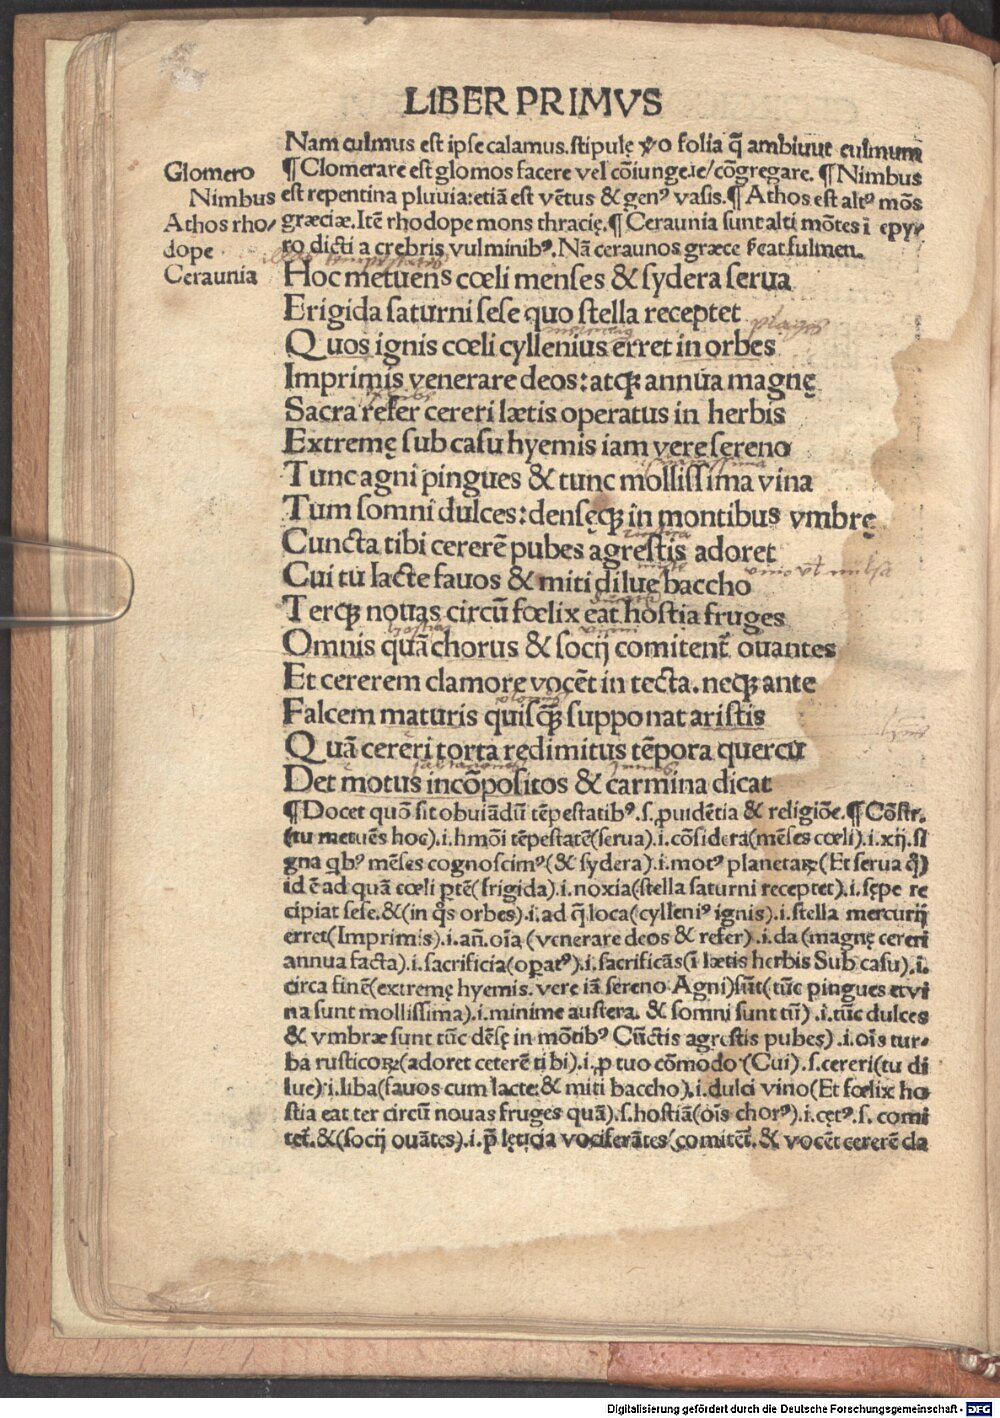 LIBER PRIMVS
Nam culmus est ipse calamus.stipulę vo folia q̄ ambiunt culmum
Glomero
¶ Clomerare est glomos facere vel cōiungere/cōgregare. ¶ Nimbus
Nimbus
est repentina pluuia:etiā est vētus & genꝰ vasis. ¶ Athos est altꝰ mōs
Athos rho/
græciæ.Itē rhodope mons thracię. ¶ Ceraunia sunt alti mōtes ī epy/
dope
ro dicti a crebris vulminibꝰ. Nā ceraunos græce
Ceraunia
Hoc metuens cœli menses & sydera serua
Frigida saturni sese quo stella receptet
Quos ignis cœli cyllenius erret in orbes
Imprimis venerare deos:atqꝫ annua magnę
Sacra refer cereri lætis operatus in herbis
Extremę sub casu hyemis iam vere sereno
Tunc agni pingues & tunc mollissima vina
Tum somni dulces:densęqꝫ in montibus vmbrę
Cuncta tibi cererē pubes agrestis adoret
Cui tu lacte fauos & miti dilue baccho
Terqꝫ nouas circū fœlix eat hostia fruges
Omnis quā chorus & socij comitent̄ ouantes
Et cererem clamore vocēt in tecta.neqꝫ ante
Falcem maturis quisqꝫ̄ supponat aristis
Quā cereri torta redimitus tēpora quercu
Det motus incōpositos & carmina dicat
¶ Docet quō sit obuiādū tēpestatibꝰ.s.ꝓuidētia & religiōe. ¶ Cōstr.
(tu metuēs hoc).i.hmōi tēpestatē(serua).i.cōsidera(mēses cœli).i.xij.si
gna qbꝰ mēses cognoscimꝰ(& sydera).i.motꝰ planetaꝝ(Et serua q̄)
id ē ad quā cœli ꝑtē(frigida).i.noxia(stella saturni receptet).i.sępe re
cipiat sese.&(in q̄s orbes).i.ad q̄.loca(cylleniꝰ ignis).i.stella mercurij
erret(Imprimis).i.añ.oīa (venerare deos & refer).i.da (magnę cereri
annua facta).i.sacrificia(oꝑatꝰ).i.sacrificās(ī lætis herbis Sub casu).i.
circa finē(extremę hyemis.vere iā sereno Agni)sūt(tūc pingues et vi
na sunt mollissima).i.minime austera. & somni sunt tū) .i.tūc dulces
& vmbræ sunt tūc dēsę in mōtibꝰ Cūctis agrestis pubes) .i.oīs tur-
ba rusticoꝝ(adoret ceterē tibi).i.ꝑ tuo cōmodo (Cui).s.cereri(tu di
lue).i.liba(fauos cum lacte:& miti baccho).i.dulci vino(Et fœlix ho
stia eat ter circū nouas fruges quā).s.hostiā(oīs chorꝰ).i.cętꝰ.s. comi
tet̄.&(socij ouātes).i.p̄ lęticia vociferātes(comitēt̄. & vocēt cererē da
Digitalisierung gefördert durch die Deutsche Forschungsgemeinschaft - DFG